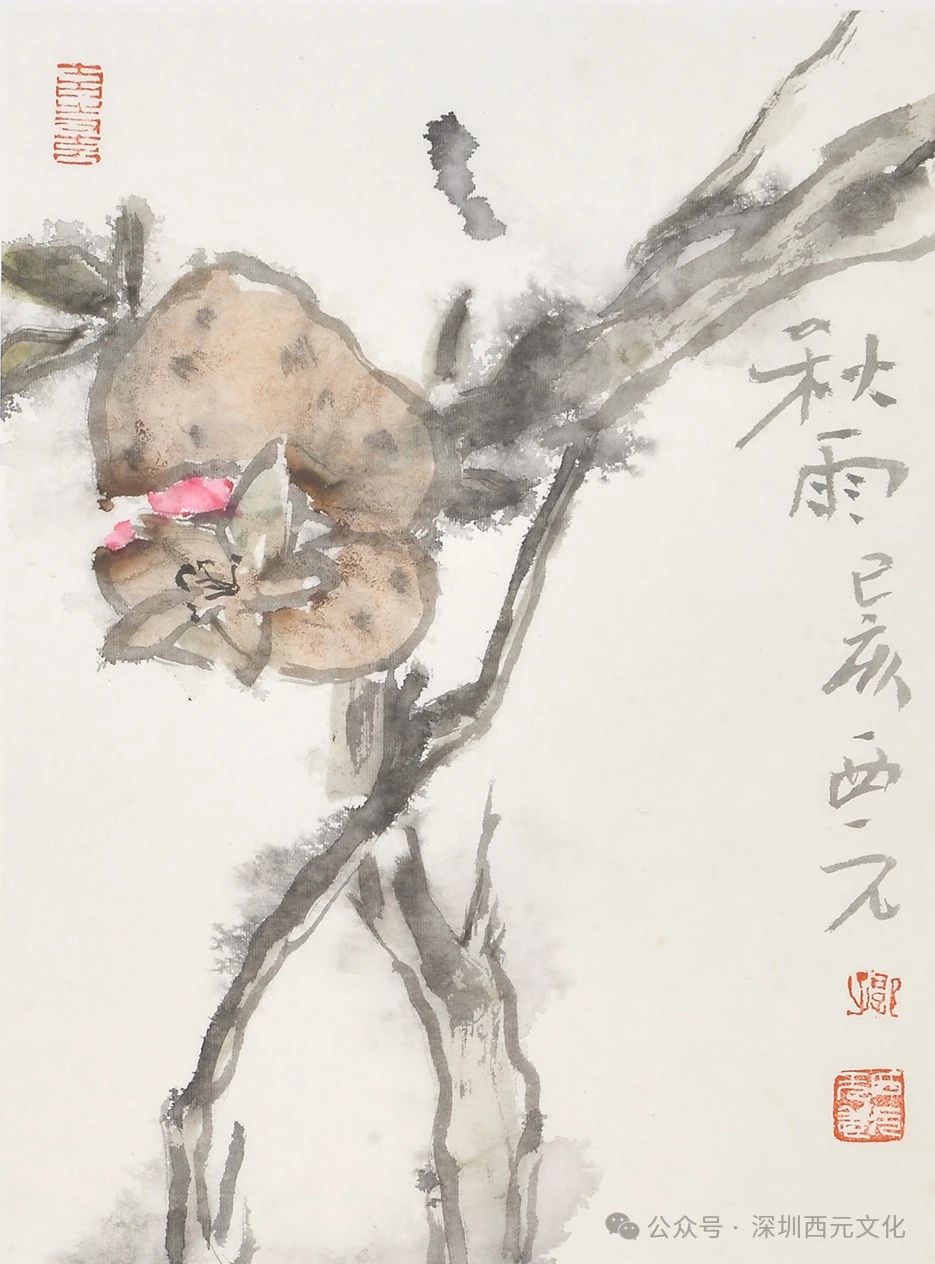 秋雨
己亥西元
公众号 · 深圳西元文化